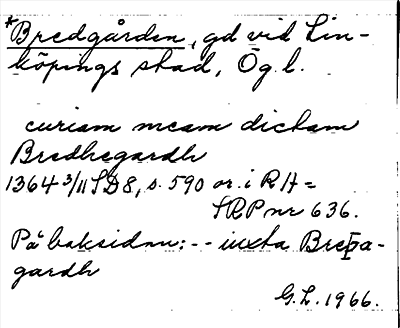 *Bredgården, gd vid Lin-
köpings stad, Ög l.
curiam meam dictam
Bredhegardh
1364 3/11 SD 8, s. 590 or. i RA =
SRP nr 636.
På baksidan: -- iuxta Breþa-
gardh
G.L. 1966.